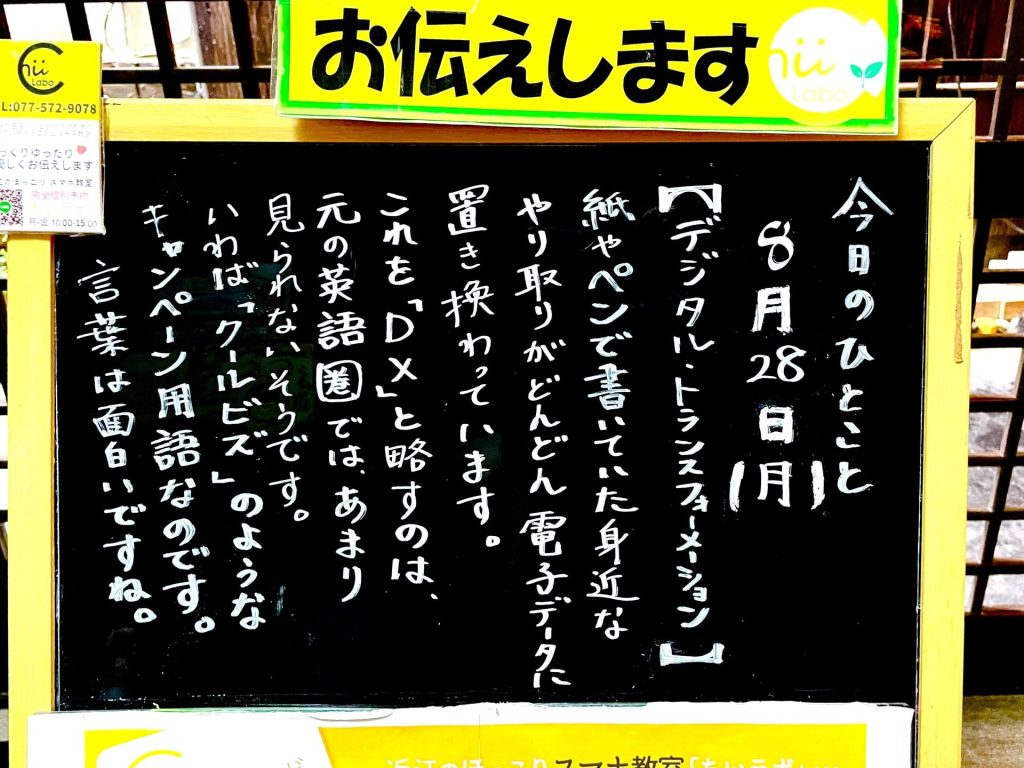 お伝えします
hii
Labo
Chii
Labo
L:077-572-9078
っくりゆったり
優しくお伝えします
スマホ教室
完全個別予約
LINE
月-金 10:00-15:00
今日のひとこと
8月28日(月)
【デジタル・トランスフォーメーション】
紙やペンで書いていた身近な
やり取りがどんどん電子データに
置き換わっています。
これを「DX」と略すのは、
元の英語圏では、あまり
見られないそうです。
いわば「クールビズ」のような
キャンペーン用語なのです。
言葉は面白いですね。
近江のほっこりスマホ教室「ちいラボ